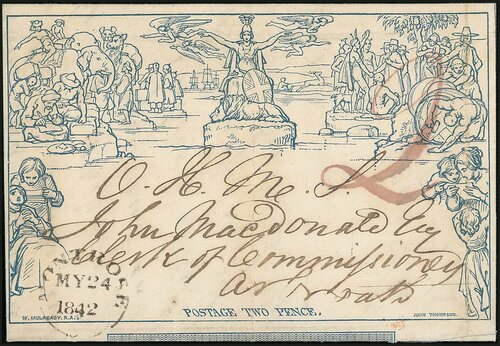 2
O. H. M. S.
John Macdonald Esq
Clerk of Commissioney
MY 24
1842
POSTAGE TWO PENCE.
W. MULREADY. R.A.
JOHN THOMPSON.